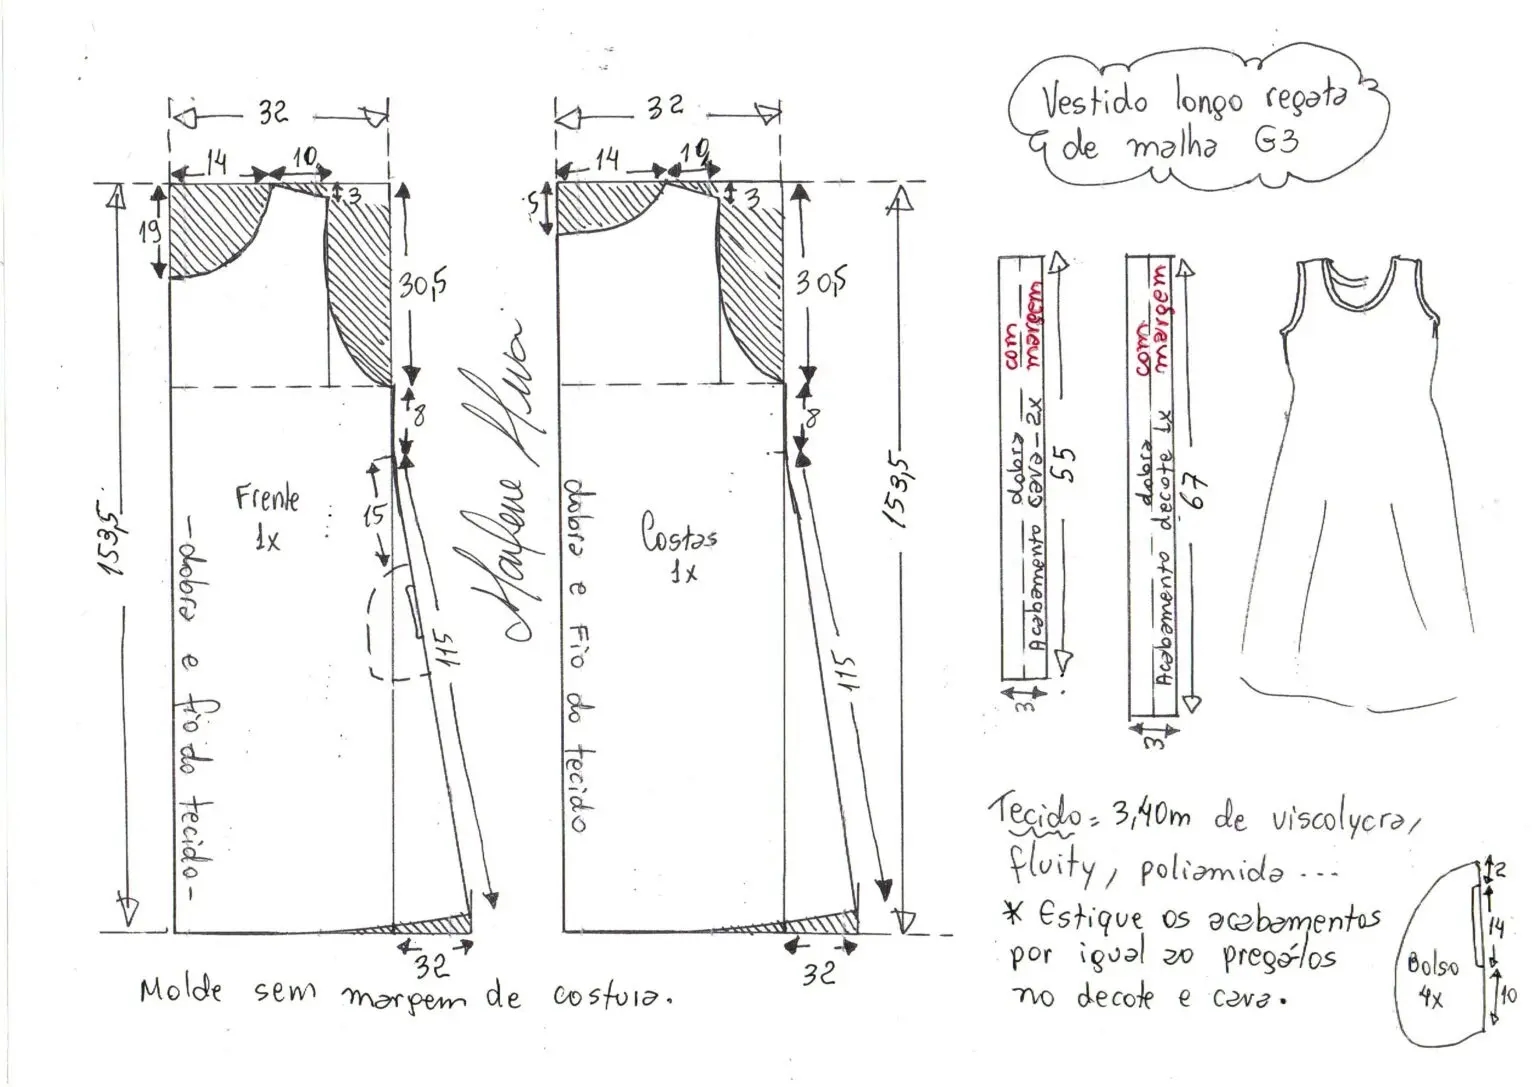 Vestido longo regata
de malha G3
32
14
10
3
19
30,5
8
15
115
153,5
Frente
1x
-dobra e fio do tecido-
32
Marlene Mukai
32
14
10
3
5
30,5
8
115
153,5
Costas
1x
dobra e Fio do tecido
32
Molde sem margem de costura.
com
margem
dobra
Acabamento cava - 2x
55
3
com
margem
dobra
Acabamento decote 1x
67
3
Tecido = 3,40m de viscolycra,
fluity, poliamida ...
* Estique os acabamentos
por igual ao pregá-los
no decote e cava.
Bolso
4x
2
14
10